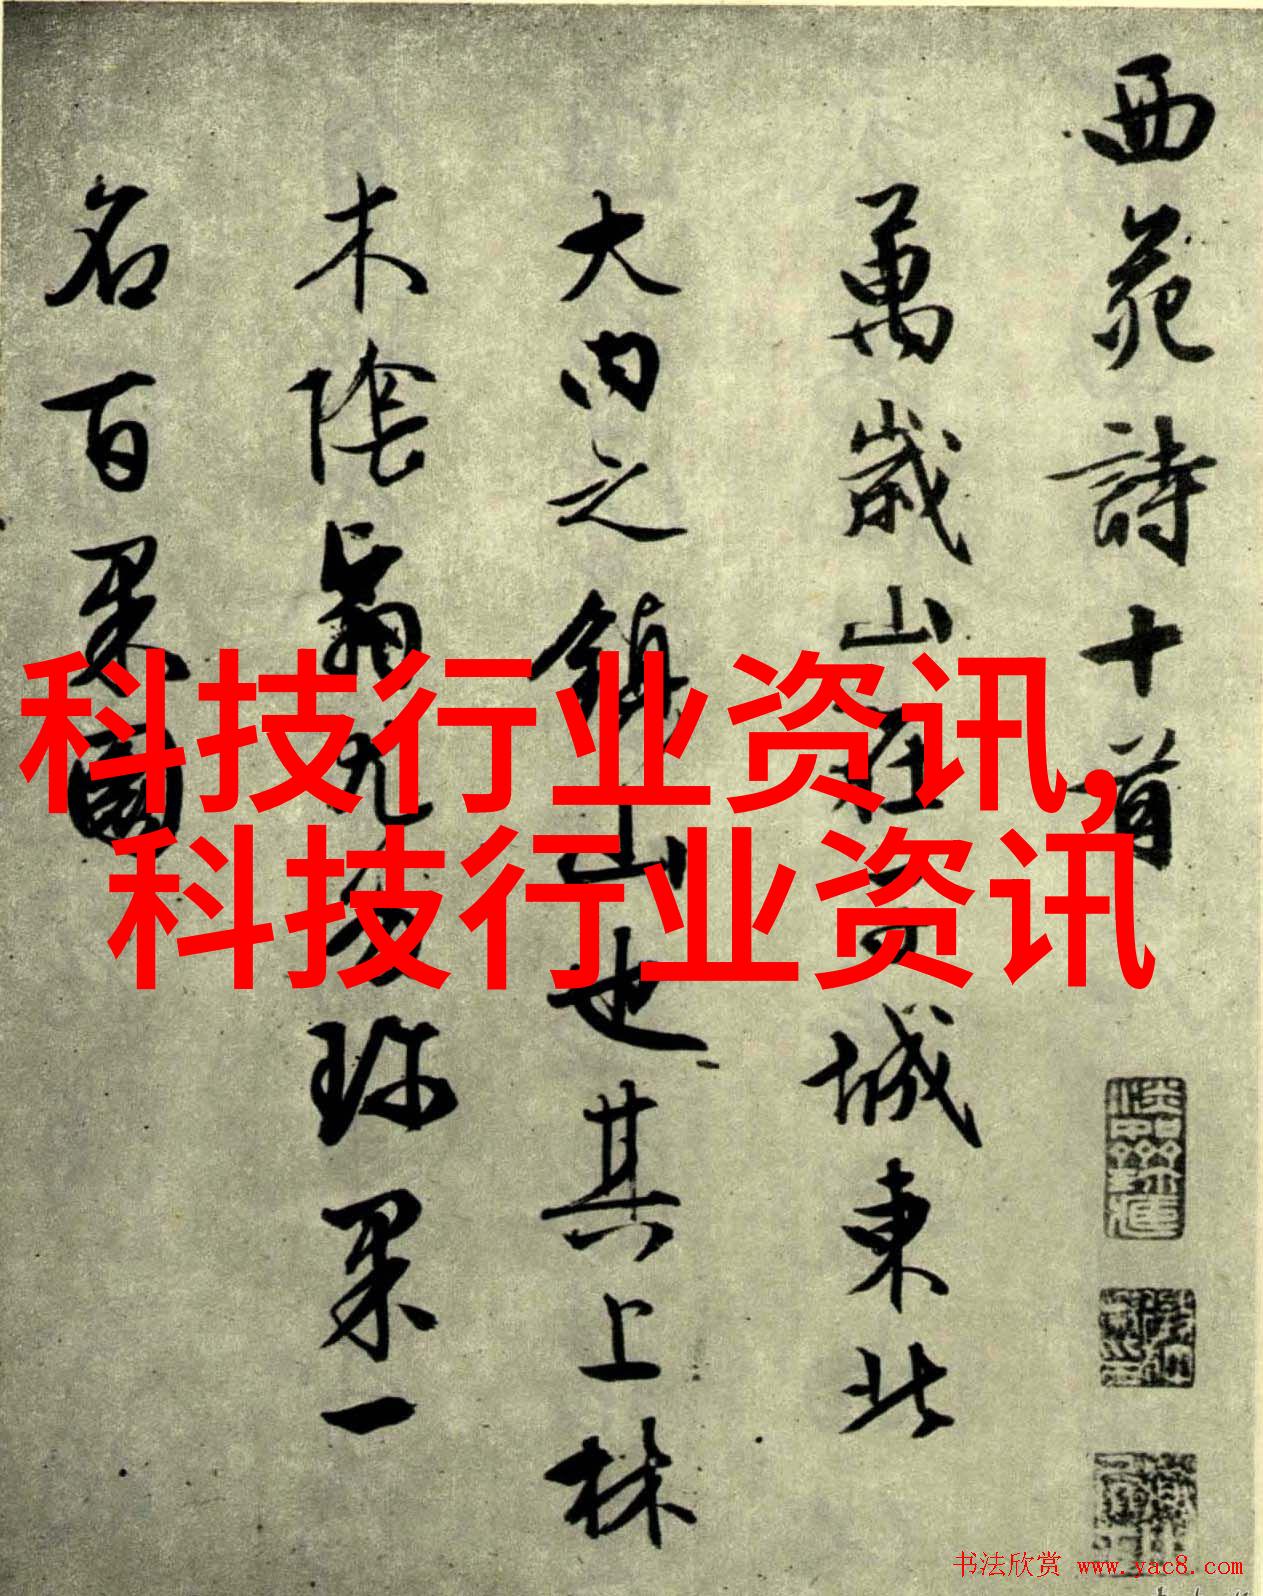 西苑詩十首
萬歲山在子城東北
大内之鎮山也其上林
木陰翳尤多珍果一
名百果園
科技行业资讯,
科技行业资讯
书法欣赏 www.yac8.com